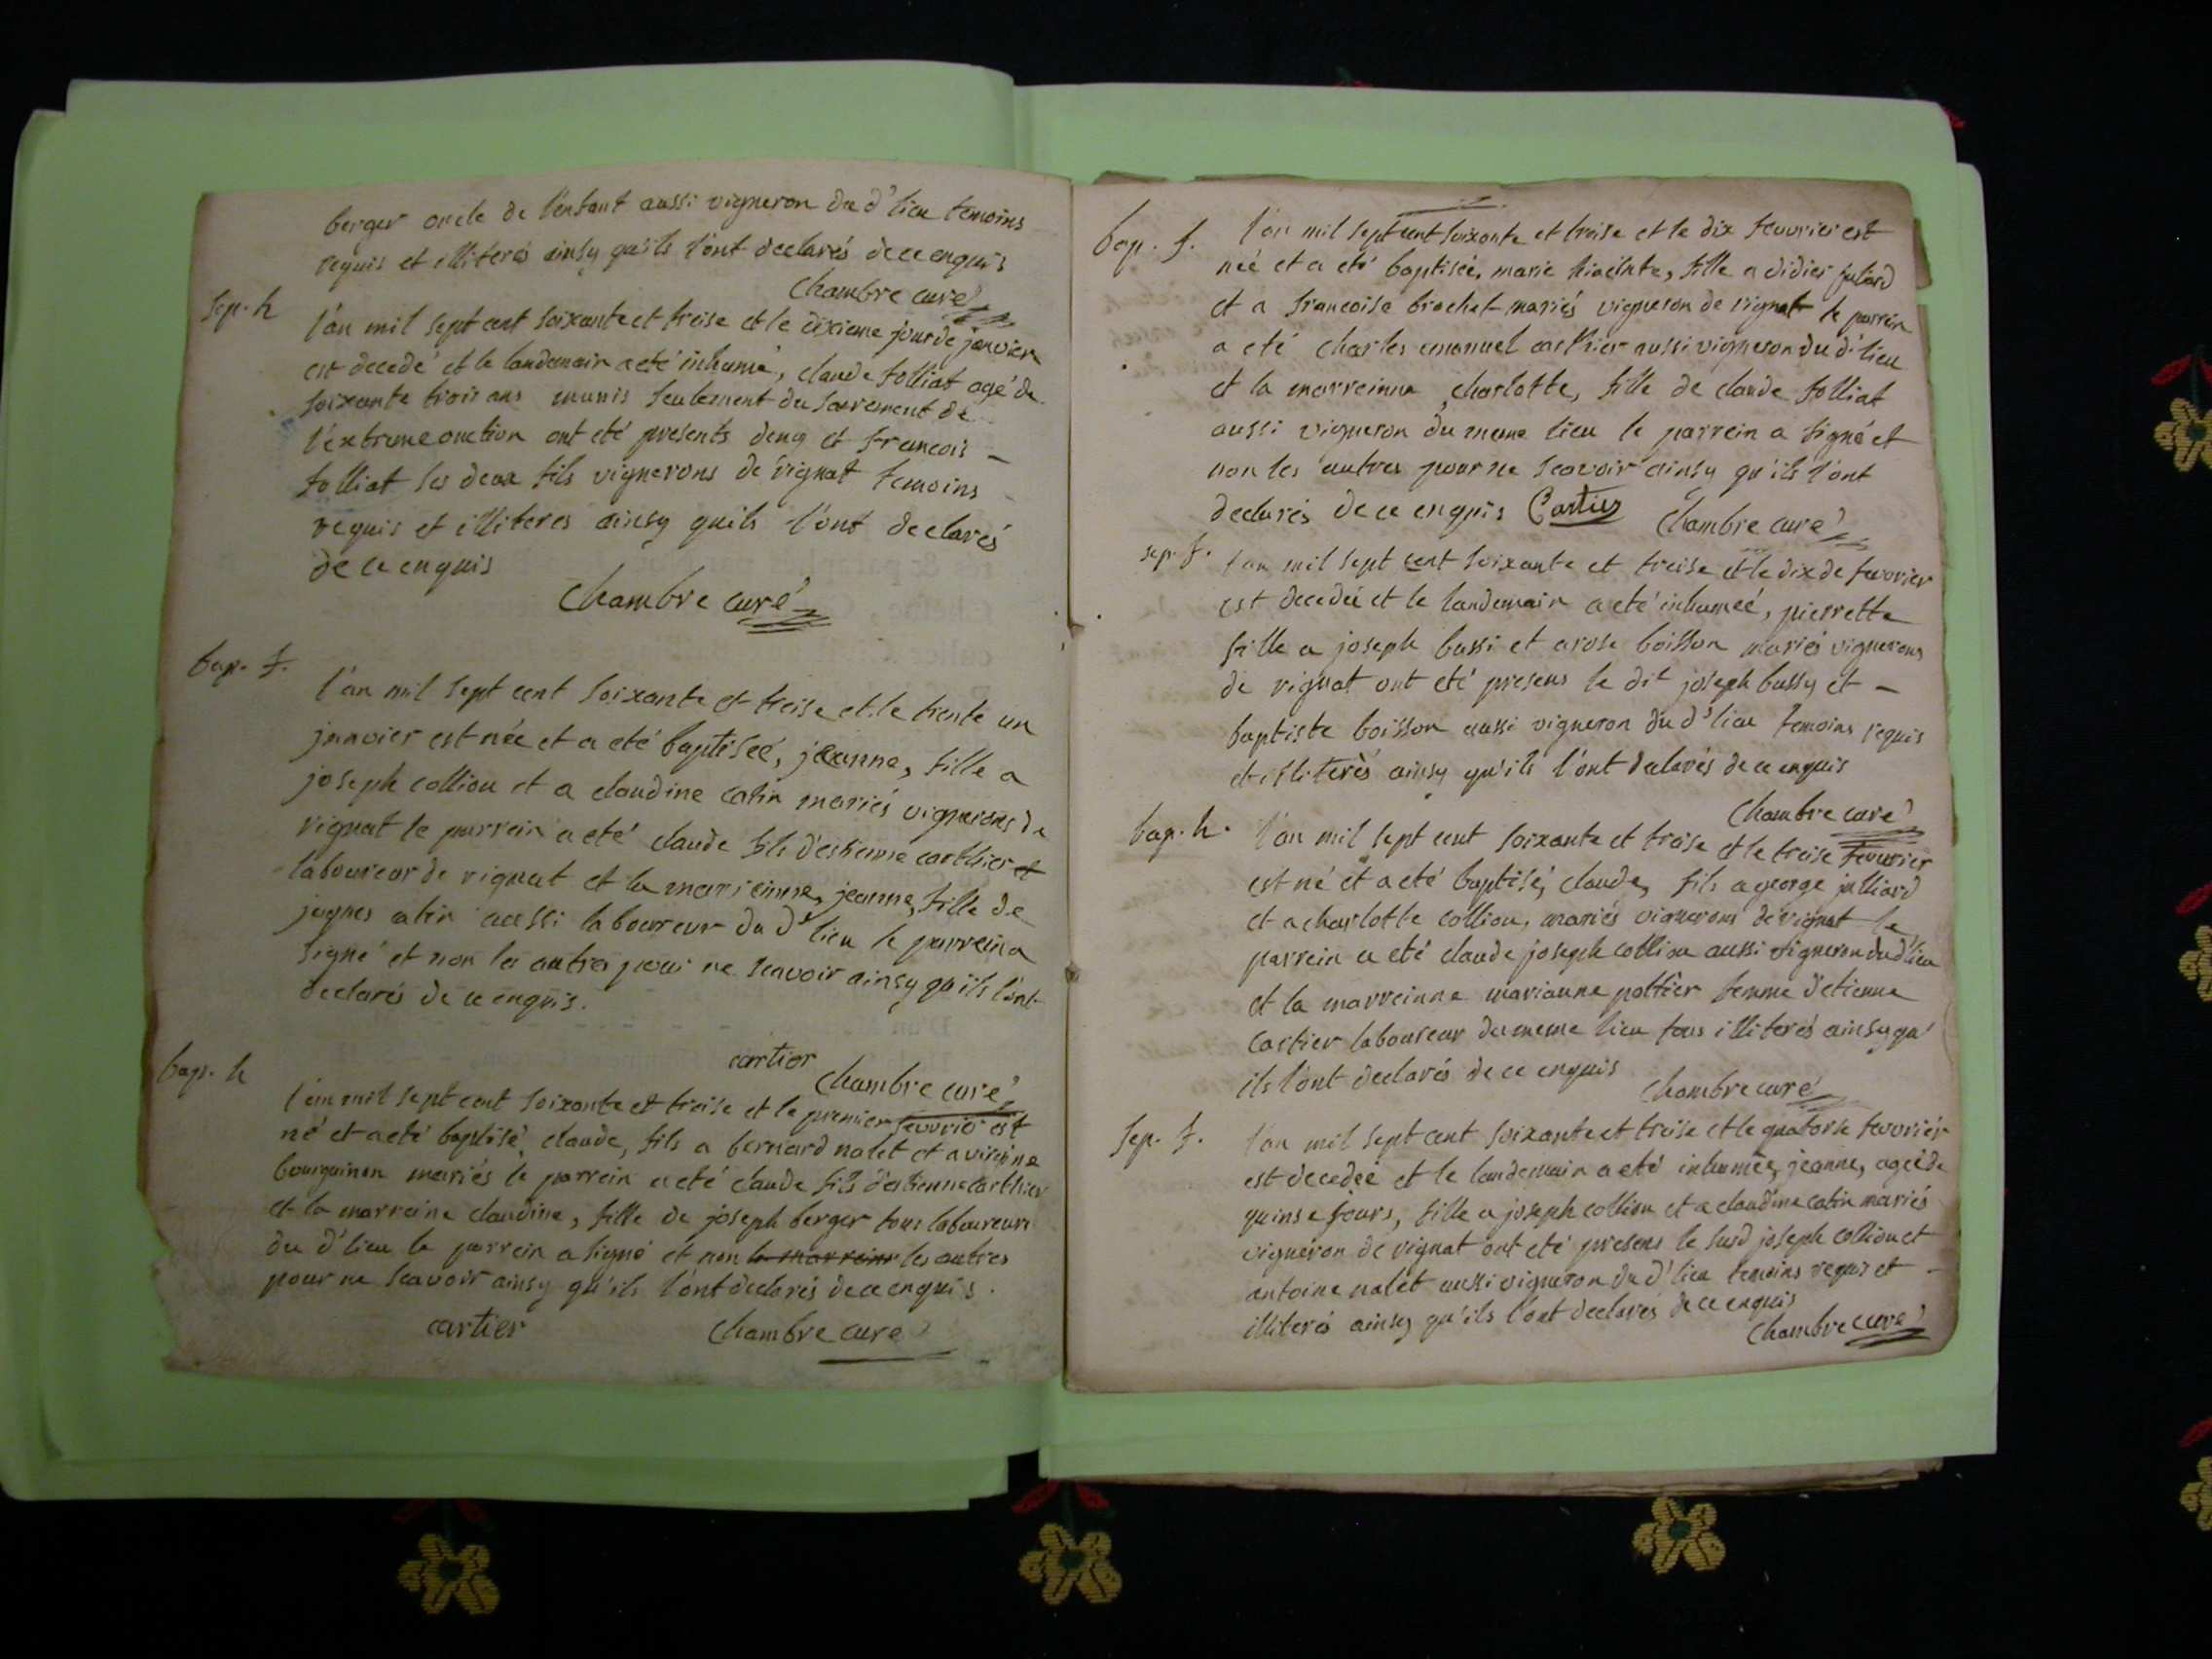 berger oncle de l'enfant aussi vigneron du d' lieu temoins
requis et illiterés ainsy qu'ils l'ont declarés de ce enquis
Chambre curé
Sep. h
l'an mil sept cent soixante et treise et le dixieme jour de janvier
est decedé et le landemain a eté inhumé, claude folliat agé de
soixante trois ans munis seulement du sacrement de
l'extreme onction ont eté presents deny et francois -
folliat ses deux fils vignerons de vignat temoins
requis et illiteres ainsy quils l'ont declarés
de ce enquis
Chambre curé
bap. f.
l'an mil sept cent soixante et treise et le trente un
janvier est née et a eté baptiseé, jeanne, fille a
joseph colliou et a claudine catin mariés vignerons de
vignat le parrein a eté claude fils d'estienne carthier et
laboureur de vignat et la marreinne, jeanne, fille de
jaques catin aussi laboureur du d' lieu le parrein a
signé et non les autres pour ne scavoir ainsy qu'ils l'ont
declarés de ce enquis.
cartier
Chambre curé
bap. h
l'an mil sept cent soixante et treise et le premier fevvrié est
né et a eté baptisé, claude, fils a bernard nalet et a
bourguinon mariés le parrein a eté claude fils d'estienne carthier
et la marreine claudine, fille de joseph berger tous laboureurs
du d' lieu le parrein a signé et non le marreine les autres
pour ne scavoir ainsy qu'ils l'ont declarés de ce enquis.
cartier Chambre curé
bap. f.
l'an mil sept cent soixante et treise et le dix fevvrier est
neé et a eté baptiseé, marie hiacinte, fille a didier juliard
et a francoise brochet mariés vigneron de vignat le parrein
a eté charles emanuel carthier aussi vigneron du d' lieu
et la marreinne, charlotte, fille de claude folliat
aussi vigneron du meme lieu le parrein a signé et
non les autres pour ne scavoir ainsy qu'ils l'ont
declarés de ce enquis Cartier Chambre curé
sep. f.
l'an mil sept cent soixante et treise et le dix de fevvrier
est decedeé et le landemain a eté inhumeé, pierrette
fille a joseph bussi et a rose boisson mariés vignerons
de vignat ont eté presens le dit joseph bussy et -
baptiste boisson aussi vigneron du d' lieu temoins requis
et illiterés ainsy qu'ils l'ont declarés de ce enquis
Chambre curé
bap. h.
l'an mil sept cent soixante et treise et le treise fevvrier
est né et a eté baptisé, claude, fils a george julliard
et a charlotte colliou, mariés vignerons de vignat le
parrein a eté claude joseph colliou aussi vigneron du d' lieu
et la marreinne marianne pottier femme d'etienne
cartier laboureur du meme lieu tous illiterés ainsy qu'
ils l'ont declarés de ce enquis
Chambre curé
Sep. f.
l'an mil sept cent soixante et treise et le quatorse fevvrier
est decedeé et le landemain a eté inhumeé, jeanne, ageé de
quinse jours, fille a joseph colliou et a claudine catin mariés
vigneron de vignat ont eté presens le susd joseph colliou et
antoine nalet aussi vigneron du d' lieu temoins requis et -
illiterés ainsy qu'ils l'ont declarés de ce enquis
Chambre curé